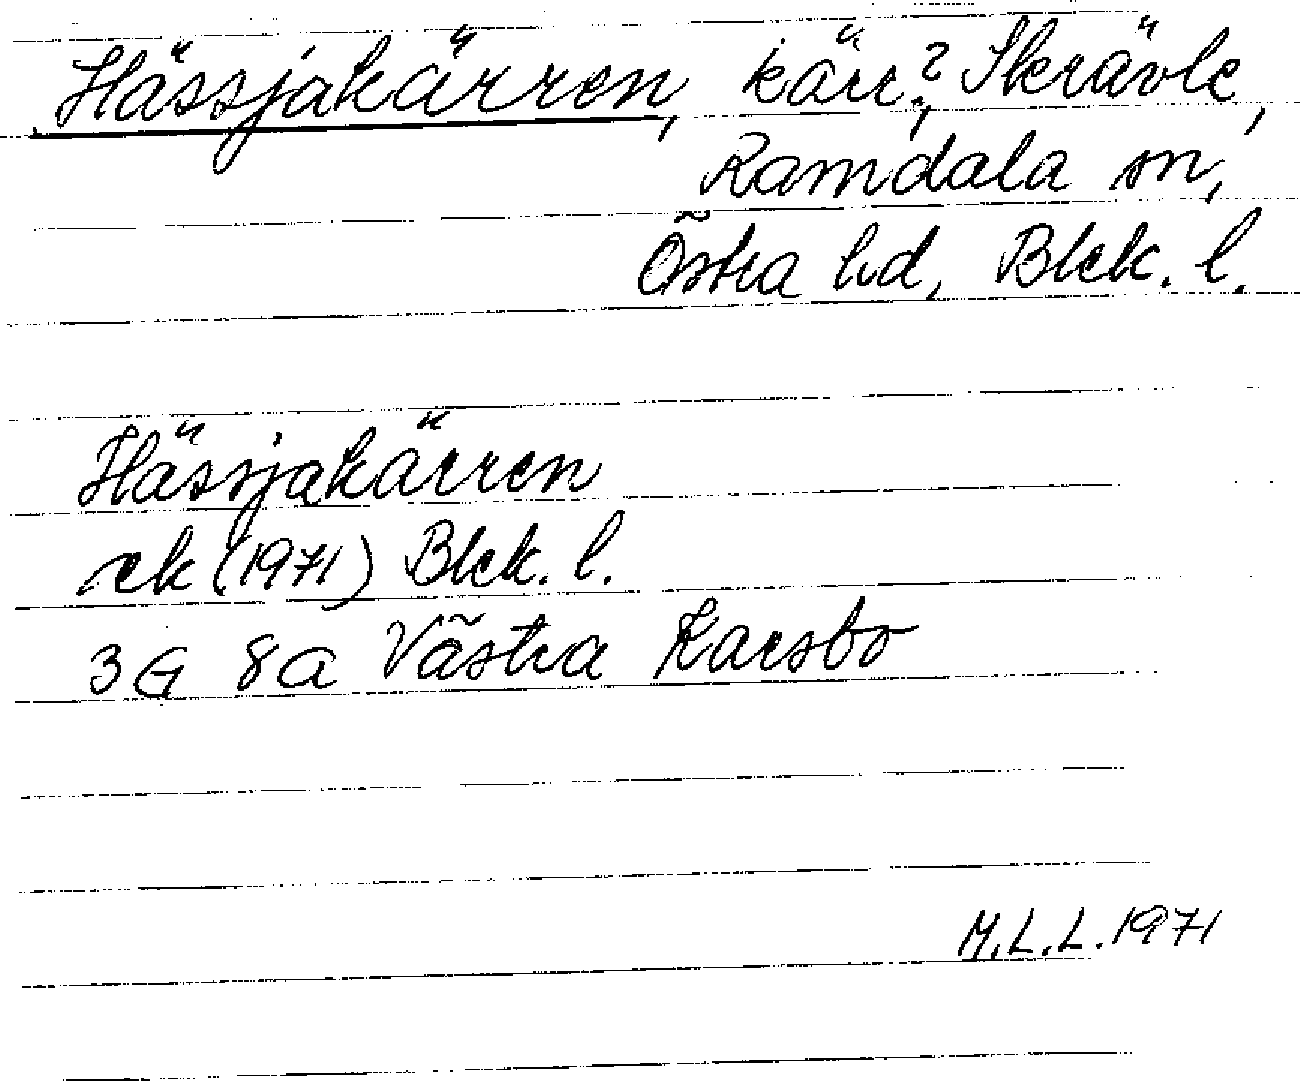 Hässjakärren, kärr?, Skrävle,
Ramdala sn,
Östra hd, Blek. l.
Hässjakärren
ek (1971) Blek. l.
3G 8a Västra Karsbo
M.L.L. 1971